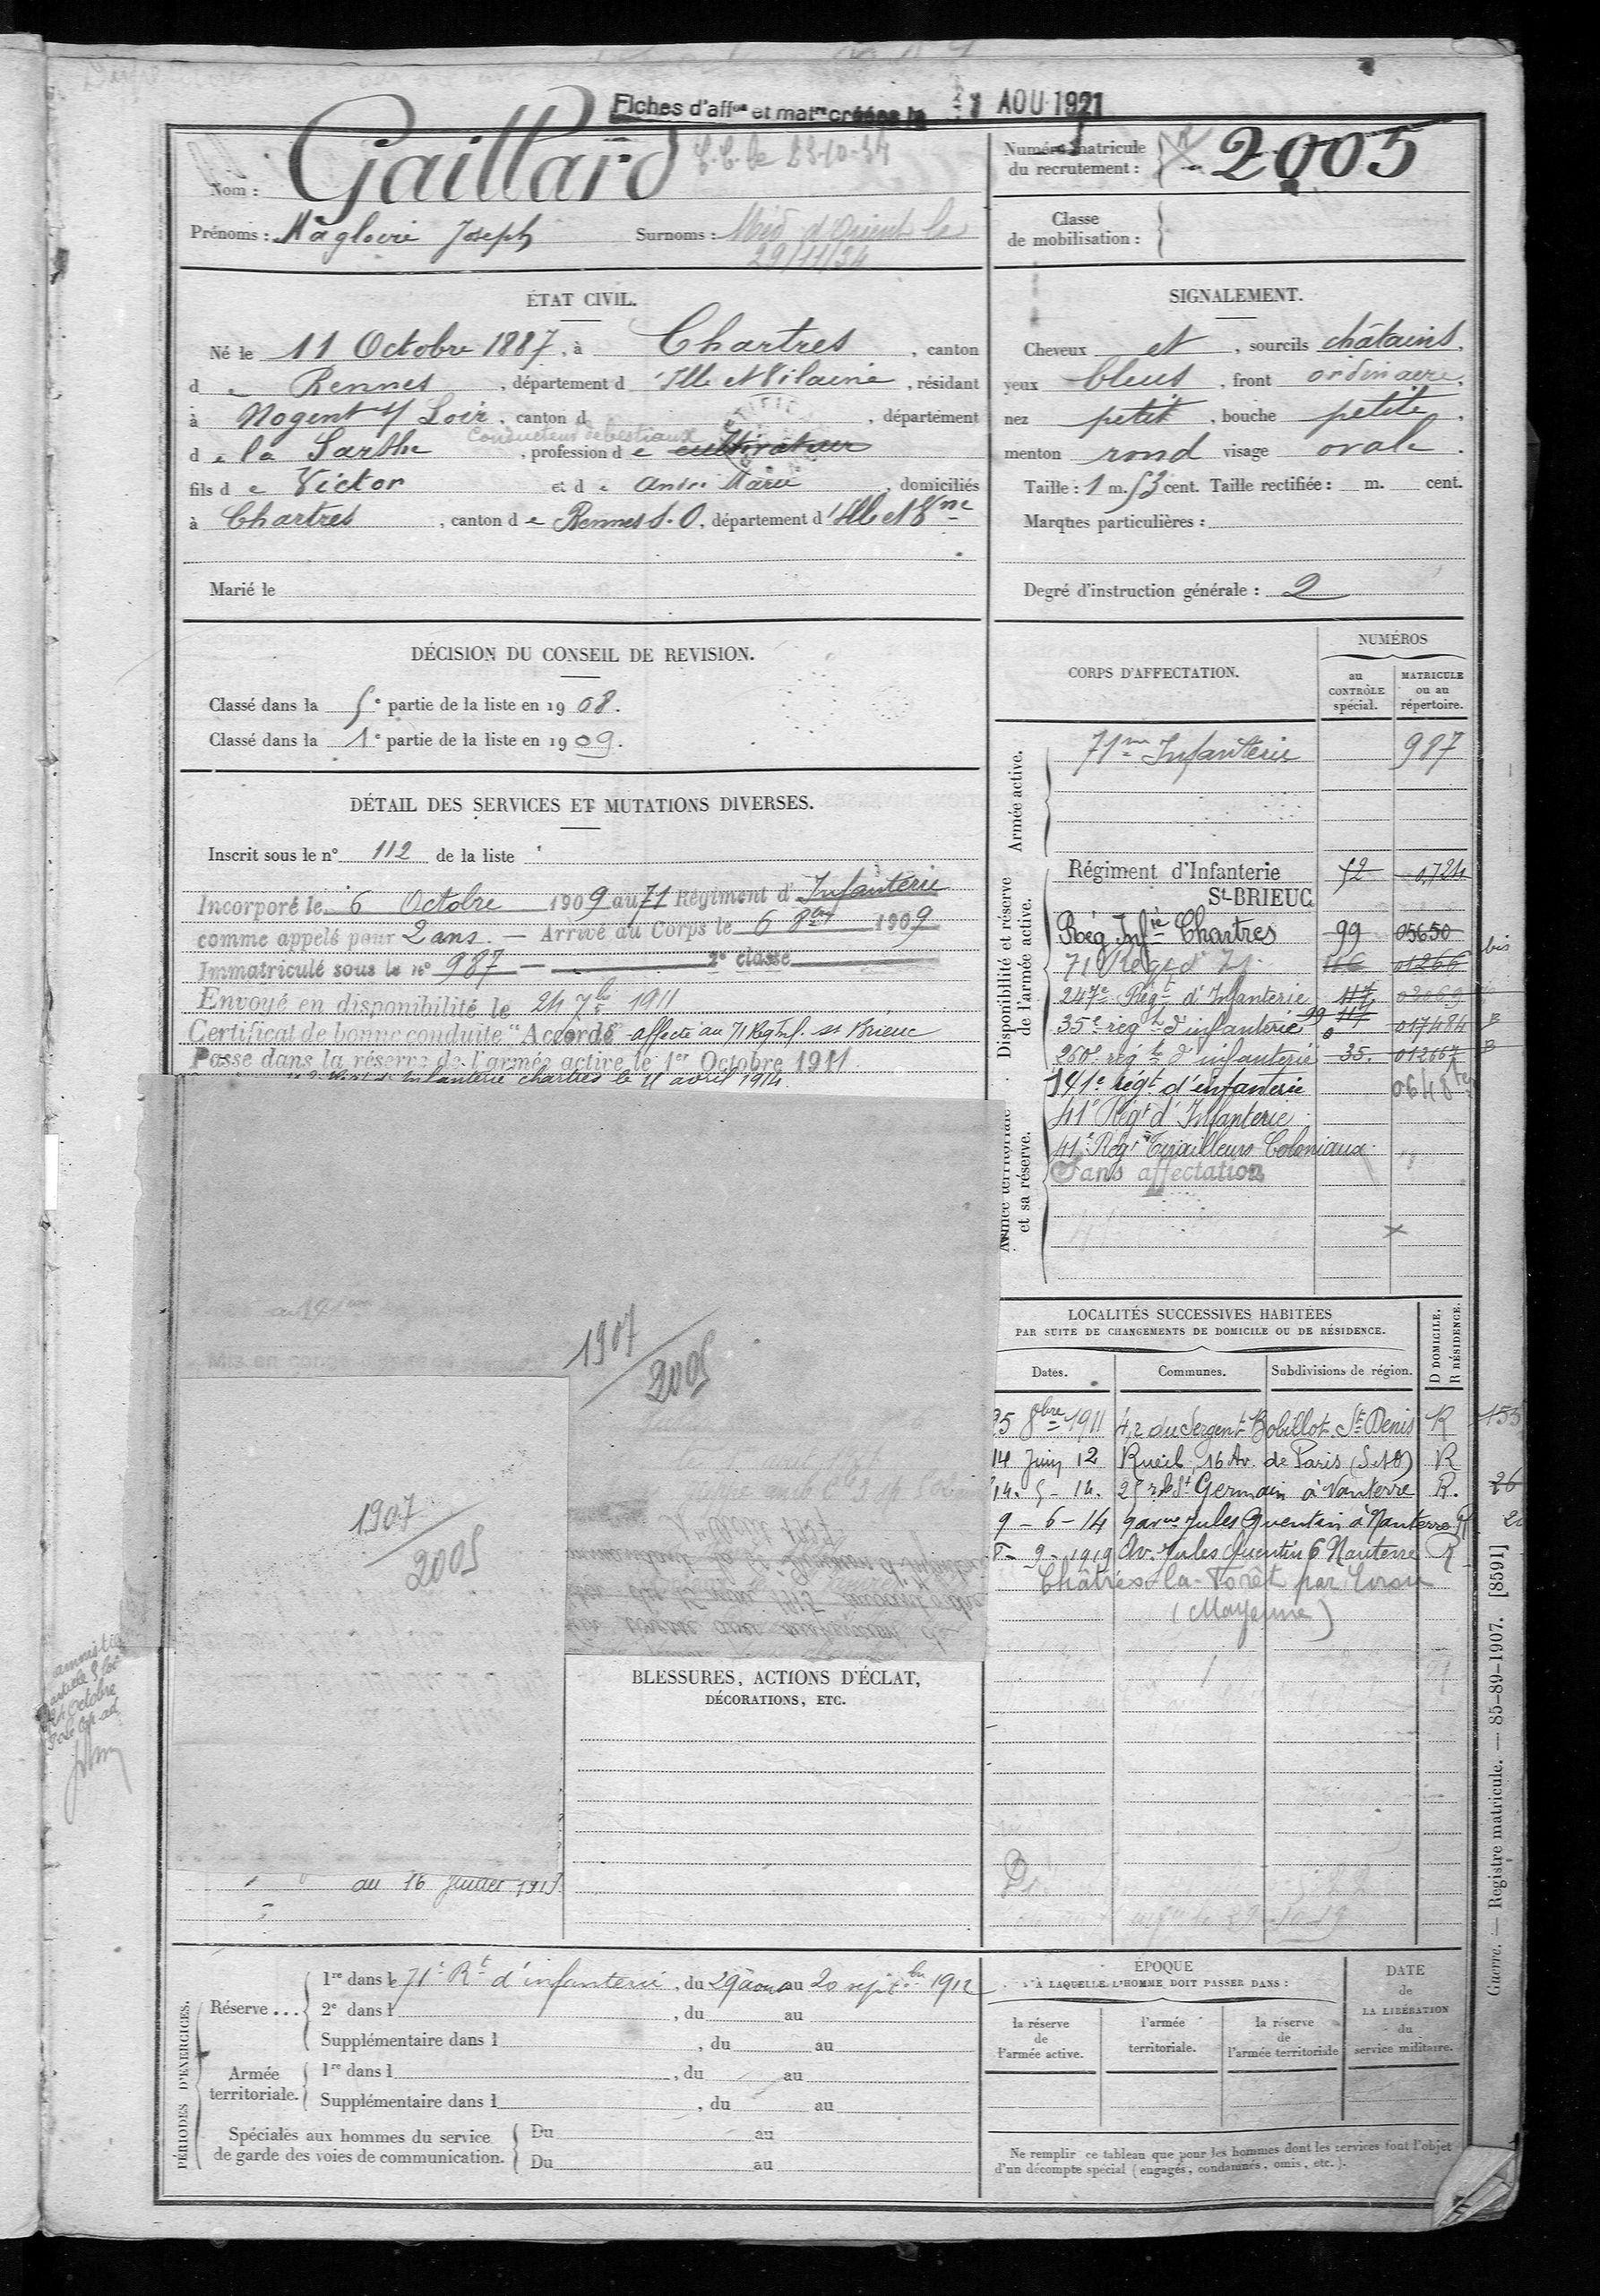 Fiches d'affon et matle créées le 1 AOU 1921
Nom : Gaillard
C.C. le 23-10-34
Prénoms : Magloire Joseph Surnoms : Méd d'Orient le
29/11/34
Numéro matricule
du recrutement : 2005
Classe
de mobilisation :
ÉTAT CIVIL.
Né le 11 Octobre 1887, à Chartres, canton
de Rennes, département d'Ille et Vilaine, résidant
à Nogent s/ Loir, canton d , département
Conducteur de bestiaux
de la Sarthe, profession de cultivateur
fils de Victor et de André Marie, domiciliés
à Chartres, canton de Rennes S.O, département d'Ille et Vne
Marié le
SIGNALEMENT.
Cheveux et , sourcils châtains,
yeux bleus, front ordinaire,
nez petit, bouche petite,
menton rond visage ovale.
Taille : 1 m. 53 cent. Taille rectifiée : m. cent.
Marques particulières :
Degré d'instruction générale : 2
DÉCISION DU CONSEIL DE REVISION.
Classé dans la 5e partie de la liste en 1908.
Classé dans la 1e partie de la liste en 1909.
DÉTAIL DES SERVICES ET MUTATIONS DIVERSES.
Inscrit sous le n° 112 de la liste
Incorporé le 6 Octobre 1909 au 71 Régiment d'Infanterie
comme appelé pour 2 ans. — Arrivé au Corps le 6 8bre 1909
Immatriculé sous le n° 987 — 2e classe
Envoyé en disponibilité le 24 7bre 1911
Certificat de bonne conduite "Accordé" affecté au 71 Reg Inf. St Brieuc
Passé dans la réserve de l'armée active le 1er Octobre 1911
Infanterie Chartres le 11 avril 1914.
1907
2005
1907
2005
au 16 Janvier 1915
amnistié
article 5 loi
24 Octobre
BLESSURES, ACTIONS D'ÉCLAT,
DÉCORATIONS, ETC.
CORPS D'AFFECTATION.
NUMÉROS
au
CONTRÔLE
spécial.
MATRICULE
ou au
répertoire.
Armée active.
71me Infanterie 987
Disponibilité et réserve
de l'armée active.
Régiment d'Infanterie 52 0.724
St-BRIEUC
Rég Infie Chartres 99 05650
71 Regt d' If. 116 01266 bis
247e Régt d'Infanterie 117 02069
35e régt d'infanterie 99 117 017484 B
260e régt d'infanterie 35. 012667 B
Armée territoriale
et sa réserve.
141e régt d'infanterie 0648 ter
41e Régt d'Infanterie
41e Régt Tirailleurs Coloniaux
Sans affectation
LOCALITÉS SUCCESSIVES HABITÉES
PAR SUITE DE CHANGEMENTS DE DOMICILE OU DE RÉSIDENCE.
Dates. Communes. Subdivisions de région. D DOMICILE. R RÉSIDENCE.
25 8bre 1911 42 du Sergent Bobillot St Denis R 155
14 Juin 12 Rueil 16 Av. de Paris (S&O) R
14. 5 - 14. 25 r de St Germain à Nanterre R. 26
9 - 6 - 14 9 avue Jules Quentin à Nanterre R
8 - 9 - 1919 Av. Jules Quentin 6 Nanterre R
Châtres la Forêt par Evron
(Mayenne)
Guerre. — Registre matricule. — 85-89-1907. [8591]
PÉRIODES D'EXERCICES.
Réserve ...
1re dans le 71e Rt d'infanterie, du 29 aout au 20 septbre 1912
2e dans l , du au
Supplémentaire dans l , du au
Armée
territoriale.
1re dans l , du au
Supplémentaire dans l , du au
Spéciales aux hommes du service
de garde des voies de communication.
Du au
Du au
ÉPOQUE
À LAQUELLE L'HOMME DOIT PASSER DANS :
la réserve
de
l'armée active.
l'armée
territoriale.
la réserve
de
l'armée territoriale
DATE
de
LA LIBÉRATION
du
service militaire.
Ne remplir ce tableau que pour les hommes dont les services font l'objet
d'un décompte spécial (engagés, condamnés, omis, etc.).